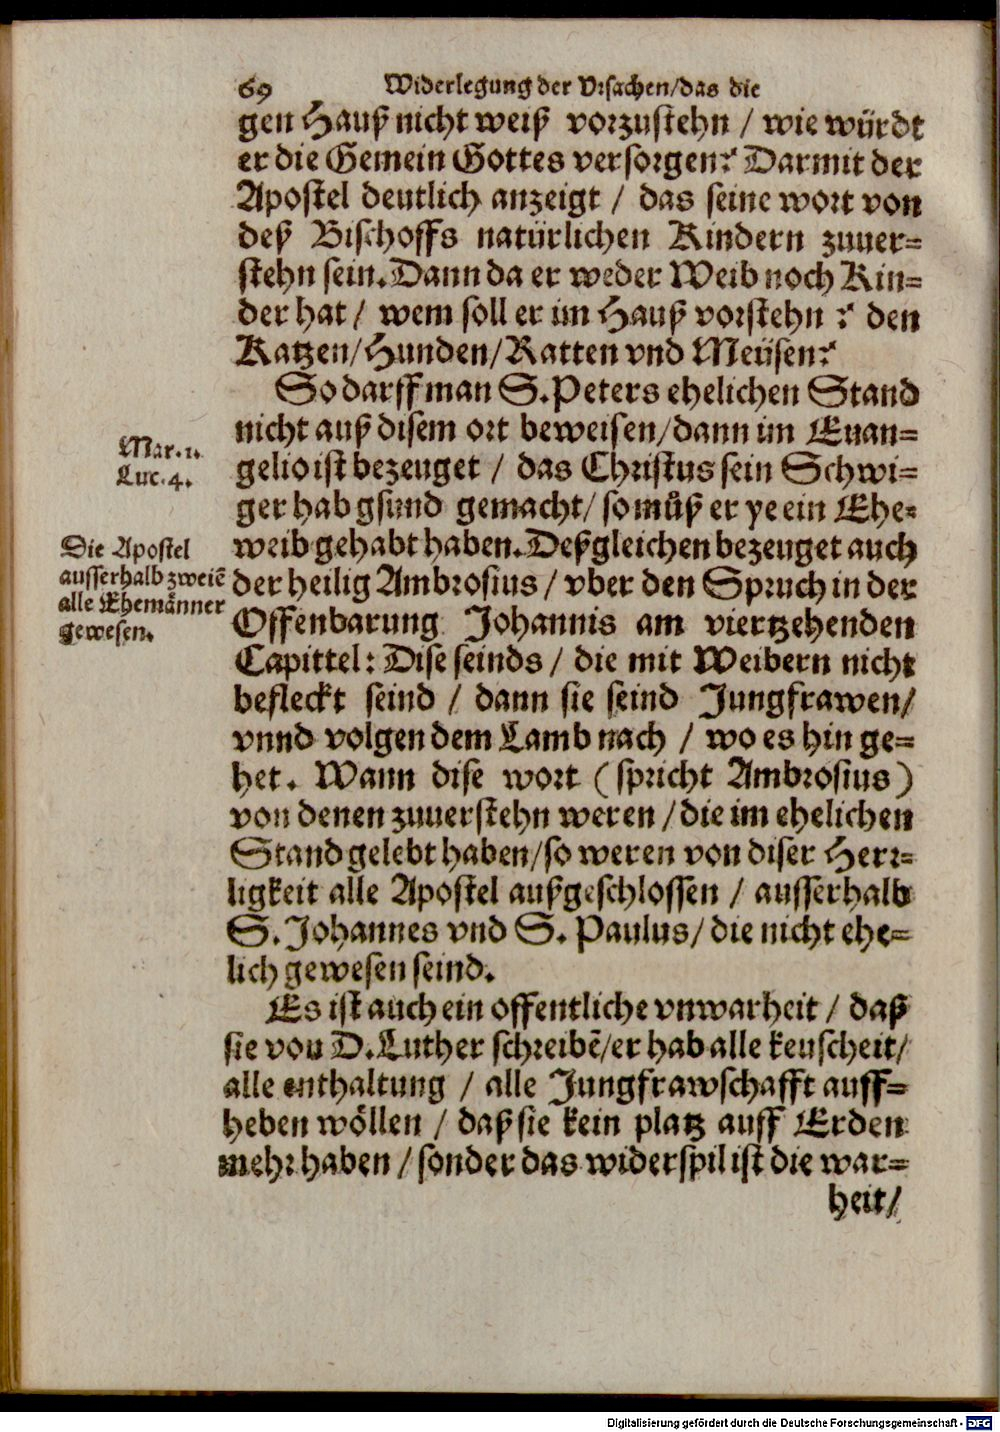 69 Widerlegung der Vrsachen/das die
gen Hauß nicht weiß vorzustehn / wie würdt
er die Gemein Gottes versorgen? Darmit der
Apostel deutlich anzeigt / das seine wort von
deß Bischoffs natürlichen Kindern zuuer=
stehn sein. Dann da er weder Weib noch Kin=
der hat / wem soll er im Hauß vorstehn ? den
Katzen/Hunden/Ratten vnd Meüsen?
So darff man S. Peters ehelichen Stand
nicht auß disem ort beweisen/dann im Euan=
gelio ist bezeuget / das Christus sein Schwi=
ger hab gsund gemacht/ so můß er ye ein Ehe=
weib gehabt haben. Deßgleichen bezeuget auch
der heilig Ambrosius / vber den Spruch in der
Offenbarung Johannis am viertzehenden
Capittel: Dise seinds / die mit Weibern nicht
befleckt seind / dann sie seind Jungfrawen/
vnnd volgen dem Lamb nach / wo es hin ge=
het. Wann dise wort (spricht Ambrosius)
von denen zuuerstehn weren / die im ehelichen
Stand gelebt haben/so weren von diser Herr=
ligkeit alle Apostel außgeschlossen / ausserhalb
S. Johannes vnd S. Paulus/ die nicht ehe=
lich gewesen seind.
Es ist auch ein offentliche vnwarheit / daß
sie von D. Luther schreibē/er hab alle keuscheit/
alle enthaltung / alle Jungfrawschafft auff=
heben wöllen / daß sie kein platz auff Erden
mehr haben / sonder das widerspil ist die war=
heit/
Mar. 1.
Luc. 4.
Die Apostel
ausserhalb zweiē
alle Ehemänner
gewesen.
Digitalisierung gefördert durch die Deutsche Forschungsgemeinschaft - DFG